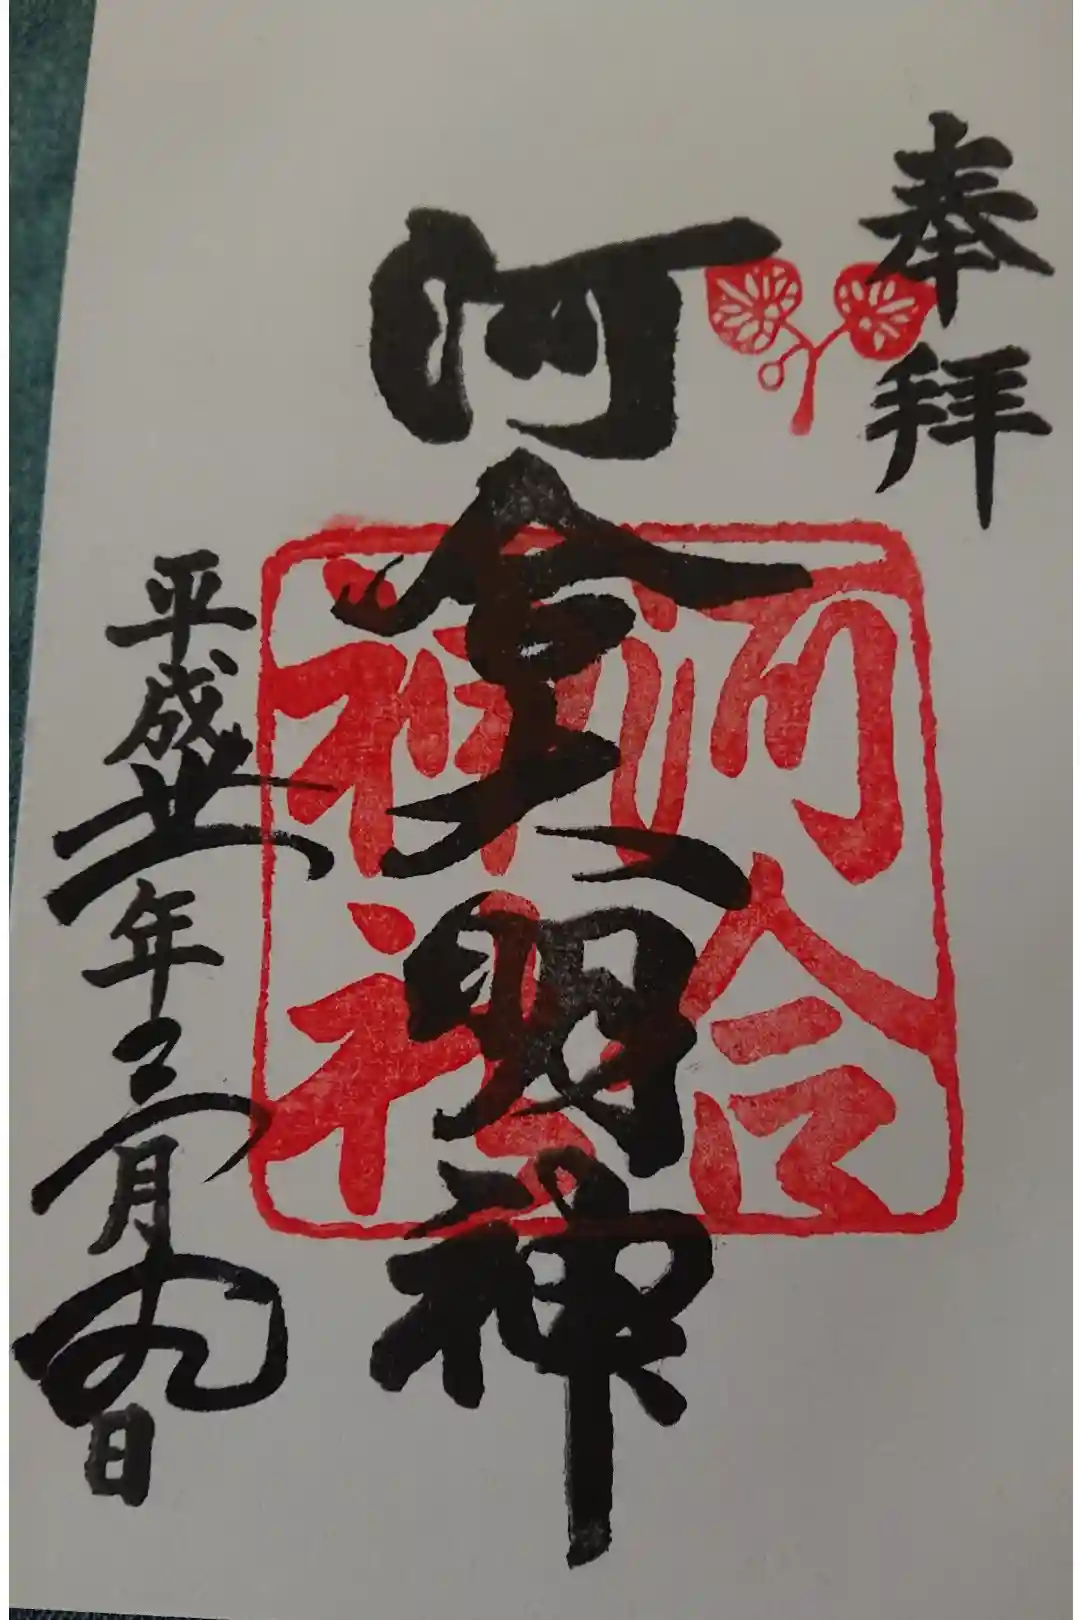 奉拝
河合大明神
河合
神社
平成卅一年三月九日